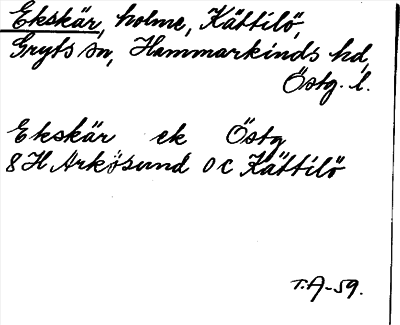 Ekskär, holme, Kättilö,
Gryts sn, Hammarkinds hd,
Östg. l.
Ekskär ek Östg
8H Arkösund 0c Kättilö
T.A-59.